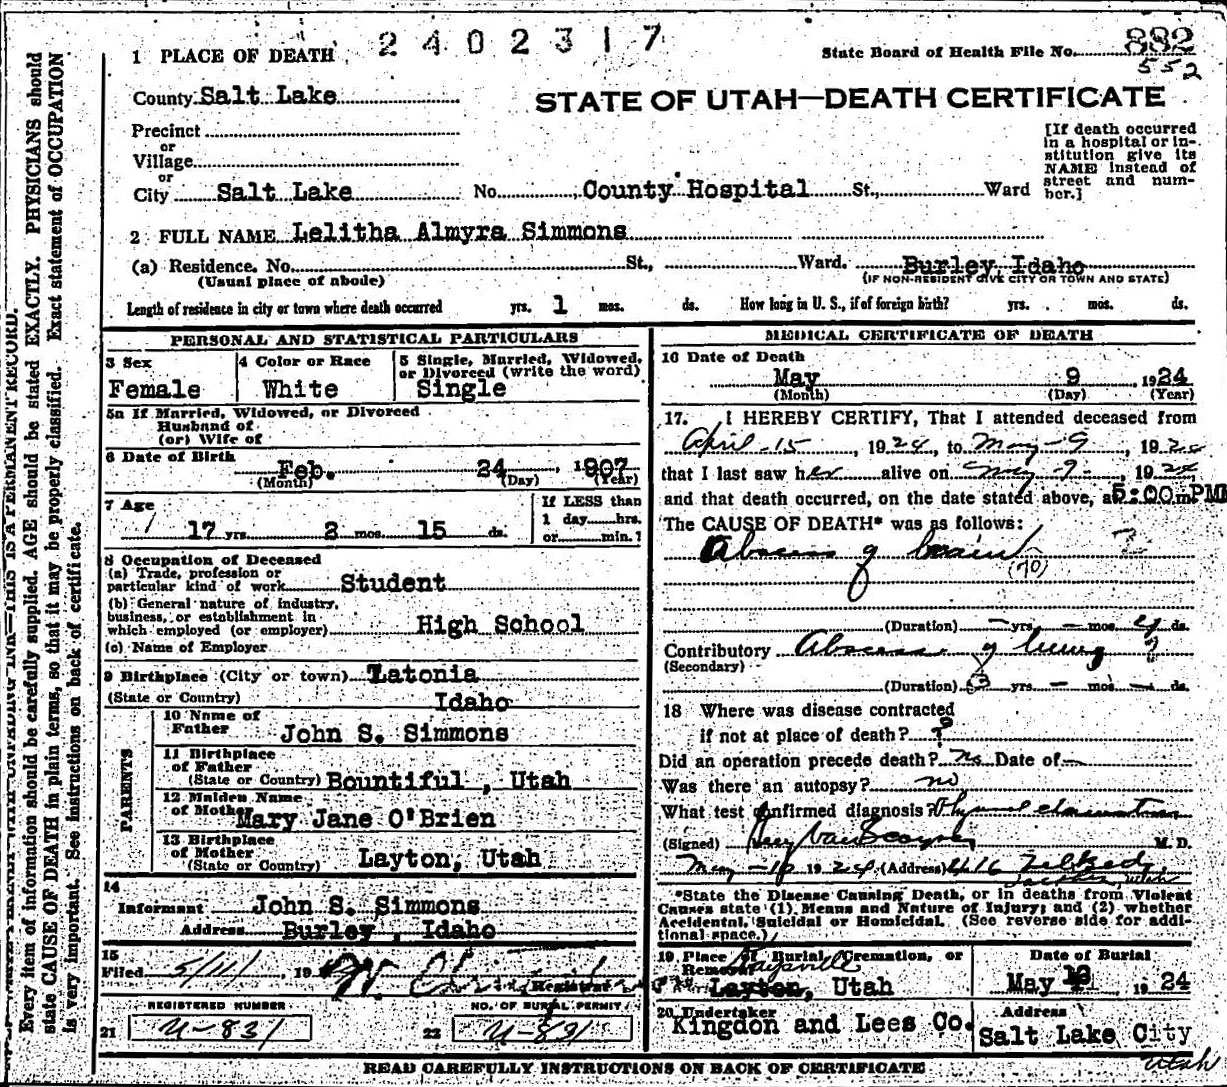 2402317
State Board of Health File No. 882
552
1 PLACE OF DEATH
County Salt Lake
STATE OF UTAH—DEATH CERTIFICATE
Precinct
or
Village
or
City Salt Lake No. County Hospital St., Ward
[If death occurred
in a hospital or in-
stitution give its
NAME instead of
street and num-
ber.]
2 FULL NAME Lelitha Almyra Simmons
(a) Residence. No. St., Ward. Burley, Idaho
(Usual place of abode) (IF NON-RESIDENT GIVE CITY OR TOWN AND STATE)
Length of residence in city or town where death occurred yrs. 1 mos. ds. How long in U. S., if of foreign birth? yrs. mos. ds.
PERSONAL AND STATISTICAL PARTICULARS
3 Sex
Female
4 Color or Race
White
5 Single, Married, Widowed,
or Divorced (write the word)
Single
5a If Married, Widowed, or Divorced
Husband of
(or) Wife of
6 Date of Birth
Feb. 24 1907
(Month) (Day) (Year)
7 Age
17 yrs. 2 mos. 15 ds.
If LESS than
1 day hrs.
or min.?
8 Occupation of Deceased
(a) Trade, profession or
particular kind of work Student
(b) General nature of industry,
business, or establishment in
which employed (or employer) High School
(c) Name of Employer
9 Birthplace (City or town) Latonia
(State or Country) Idaho
PARENTS
10 Name of
Father John S. Simmons
11 Birthplace
of Father
(State or Country) Bountiful, Utah
12 Maiden Name
of Mother Mary Jane O'Brien
13 Birthplace
of Mother
(State or Country) Layton, Utah
14
Informant John S. Simmons
Address Burley, Idaho
15
Filed 5/11/, 19
Registrar
REGISTERED NUMBER
21 U-831
NO. OF BURIAL PERMIT
22 U-831
MEDICAL CERTIFICATE OF DEATH
16 Date of Death
May 9, 1924
(Month) (Day) (Year)
17. I HEREBY CERTIFY, That I attended deceased from
April 15, 1924, to May 9, 1924
that I last saw her alive on May 9, 1924
and that death occurred, on the date stated above, at 5:00 m PM
The CAUSE OF DEATH* was as follows:
Abscess of brain ?
(70)
(Duration) — yrs. — mos. ds.
Contributory Abscess of lung ?
(Secondary)
(Duration) yrs. — mos. — ds.
18 Where was disease contracted
if not at place of death? ?
Did an operation precede death? No Date of —
Was there an autopsy? no
What test confirmed diagnosis?
(Signed) M. D.
May 10 1924 (Address) 416
*State the Disease Causing Death, or in deaths from Violent
Causes state (1) Means and Nature of Injury; and (2) whether
Accidental, Suicidal or Homicidal. (See reverse side for addi-
tional space.)
19 Place of Burial, Cremation, or
Removal Kaysville
Layton, Utah
Date of Burial
May 1924
20 Undertaker
Kingdon and Lees Co.
Address
Salt Lake City
Utah
READ CAREFULLY INSTRUCTIONS ON BACK OF CERTIFICATE
Every item of information should be carefully supplied. AGE should be stated EXACTLY. PHYSICIANS should
state CAUSE OF DEATH in plain terms, so that it may be properly classified. Exact statement of OCCUPATION
is very important. See instructions on back of certificate.
THIS IS A PERMANENT RECORD.